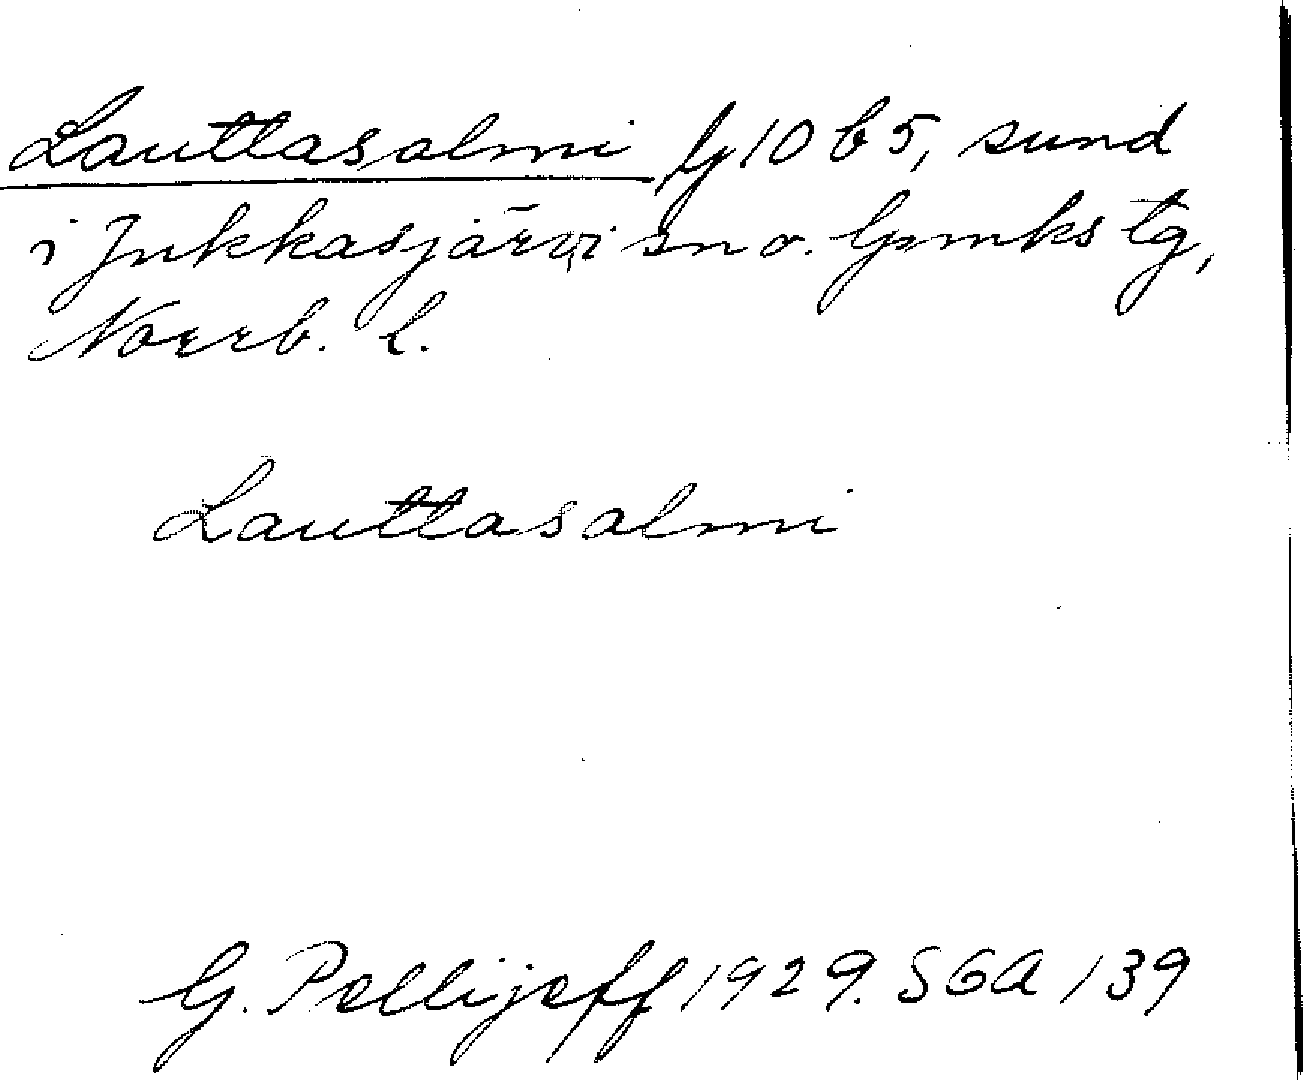 Lauttasalmi G 10 b 5, sund
i Jukkasjärvi sn o. Gmmks tg,
Norrb. l.
Lauttasalmi
G. Pellijeff 1929. SGA 139